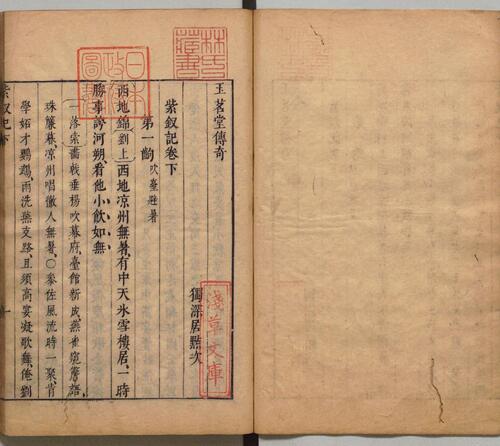 玉茗堂傳奇
獨深居點次
紫釵記卷下
第一齣 吹臺避暑
西地錦劉上西地凉州無暑有中天氷雪樓居一時
勝事誇河朔看他小飲如無
一落索畵戟垂楊吹幕府臺館新成燕雀窺簷語
珠簾暮凉州唱徹人無暑〇參佐風流時一聚肯
學妬才鸚鵡雨洗燕支路且須高宴凝歌舞俺劉
林氏藏書
日本政府圖書
淺草文庫